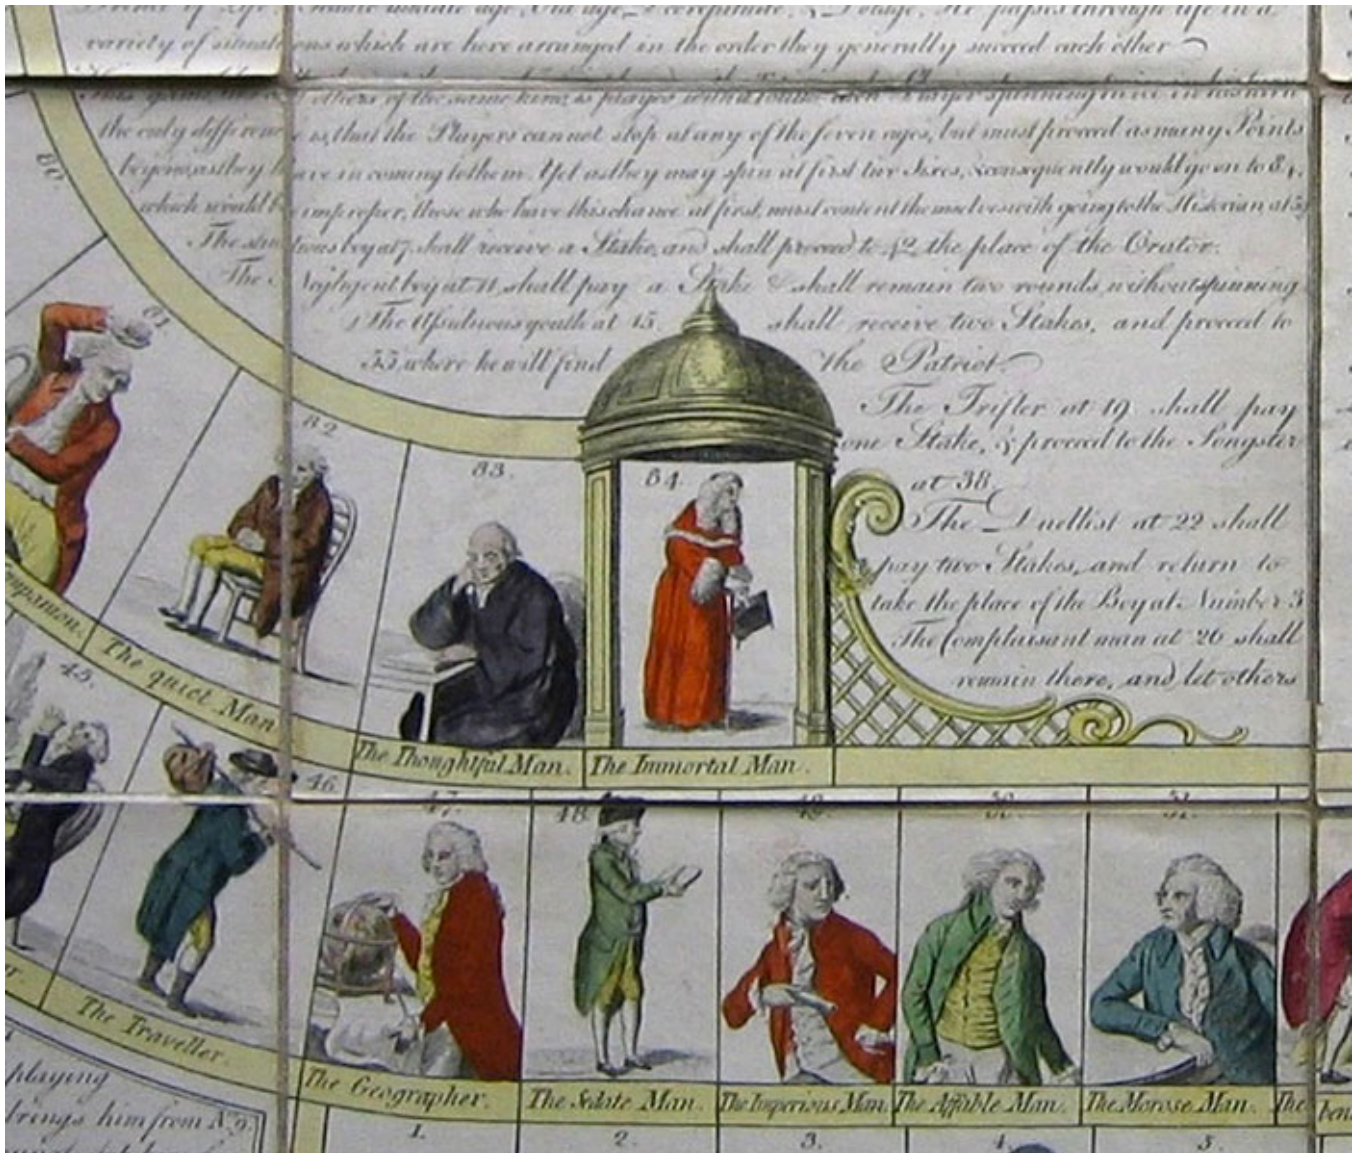 variety of situations which are here arranged in the order they generally succeed each other
others of the same kind, is played with a totum each Player spinning twice in his turn
the only difference is, that the Players cannot stop at any of the seven ages, but must proceed as many Points
beyond, as they have in coming to them. Yet as they may spin at first two Sixes, & consequently would go on to 84,
which would be improper, those who have this chance at first, must content themselves with going to the Historian at 39
The studious boy at 7. shall receive a Stake, and shall proceed to 42 the place of the Orator.
The Negligent boy at 11, shall pay a Stake & shall remain two rounds, without spinning
The Assiduous youth at 15. shall receive two Stakes, and proceed to
55, where he will find the Patriot.
The Trifler at 19 shall pay
one Stake, & proceed to the Songster
at 38.
The Duellist at 22 shall
pay two Stakes, and return to
take the place of the Boy at Number 3
The Complaisant man at 26 shall
remain there, and let others
80.
81
82
83.
84.
The quiet Man
The Thoughtful Man.
The Immortal Man.
45.
46.
47.
48.
49.
50.
51.
The Traveller.
The Geographer.
The Sedate Man.
The Imperious Man.
The Affable Man.
The Morose Man.
The
playing
brings him from No. 9.
1.
2.
3.
4.
5.